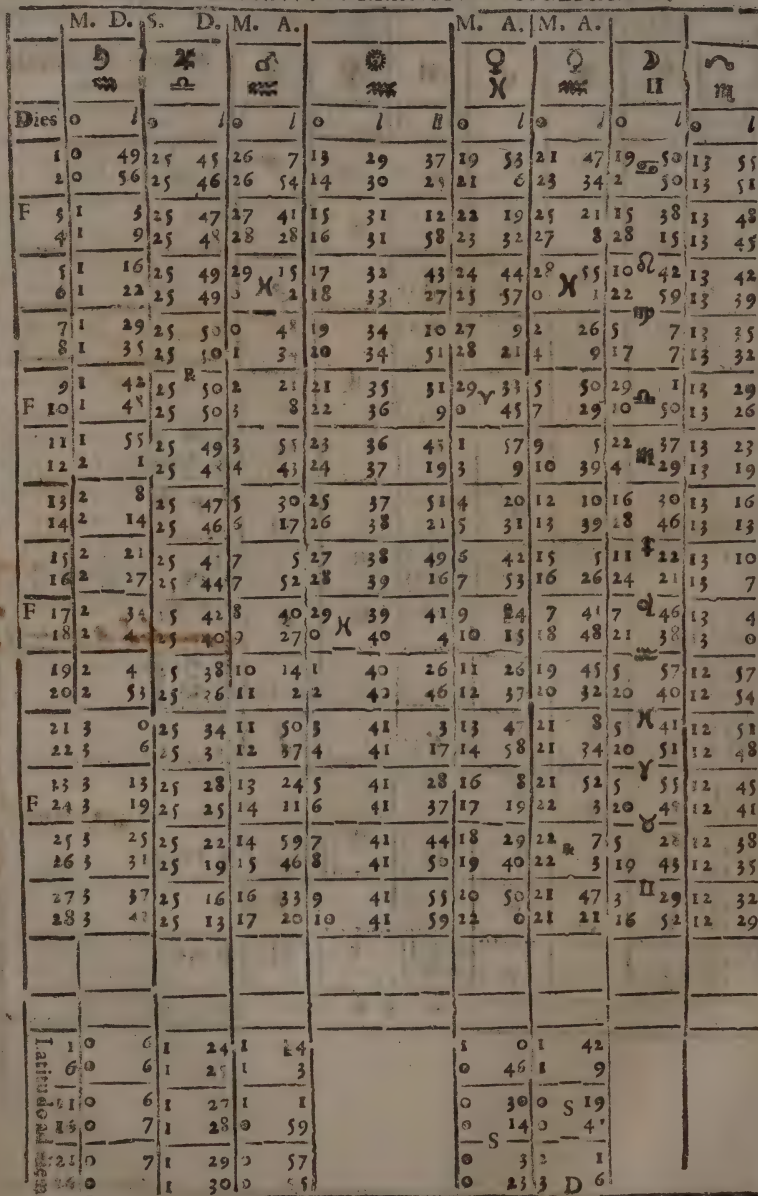 M. D. S. D. M. A. M. A. M. A.
♄ ♃ ♂ ☉ ♀ ☿ ☽ ☊
♒ ♎ ♒ ♒ ♓ ♒ II ♏
Dies o l o l o l o l ll o l o l o l o l
1 0 49 25 45 26 7 13 29 37 19 53 21 47 19 50 13 55
2 0 56 25 46 26 54 14 30 21 6 23 34 2 ♋ 50 13 51
F 3 1 3 25 47 27 41 15 31 12 22 19 25 21 15 38 13 48
4 1 9 25 48 28 28 16 31 58 23 32 27 8 28 15 13 45
5 1 16 25 49 29 15 17 32 43 24 44 28 55 10 ♌ 42 13 42
6 1 22 25 49 0 ♓ 2 18 33 27 25 57 0 ♓ 22 59 13 39
7 1 29 25 50 0 48 19 34 10 27 9 2 26 5 ♍ 7 13 35
8 1 35 25 50 1 34 20 34 51 28 21 4 9 17 7 13 32
9 1 42 25 ℞ 50 2 21 21 35 31 29 33 5 50 29 1 13 29
F 10 1 48 25 50 3 8 22 36 9 0 ♈ 45 7 29 10 ♎ 50 13 26
11 1 55 25 49 3 55 23 36 45 1 57 9 5 22 37 13 23
12 2 1 25 48 4 43 24 37 19 3 9 10 39 4 ♏ 29 13 19
13 2 8 25 47 5 30 25 37 51 4 20 12 10 16 30 13 16
14 2 14 25 46 6 17 26 38 21 5 31 13 39 28 46 13 13
15 2 21 25 4 7 5 27 38 49 6 42 15 5 11 ♐ 22 13 10
16 2 27 25 44 7 52 28 39 16 7 53 16 26 24 21 13 7
F 17 2 34 5 42 8 40 29 39 41 9 4 7 41 7 ♑ 46 13 4
18 2 4 25 40 9 27 0 ♓ 40 4 10 15 18 48 21 38 13 0
19 2 4 5 38 10 14 1 40 26 11 26 19 45 5 ♒ 57 12 57
20 2 53 25 36 11 2 2 40 46 12 37 20 32 20 40 12 54
21 3 0 25 34 11 50 3 41 3 13 47 21 8 5 ♓ 41 12 51
22 3 6 25 3 12 37 4 41 17 14 58 21 34 20 51 12 48
23 3 13 25 28 13 24 5 41 28 16 8 21 52 5 ♈ 55 12 45
F 24 3 19 25 25 14 11 6 41 37 17 19 22 3 20 48 12 41
25 3 25 25 22 14 59 7 41 44 18 29 22 7 5 ♉ 28 12 38
26 3 31 25 19 15 46 8 41 50 19 40 22 ℞ 3 19 43 12 35
27 3 37 25 16 16 33 9 41 55 20 50 21 47 3 II 29 12 32
28 3 25 13 17 20 10 41 59 22 0 21 21 16 52 12 29
Latitudo ad diem
1 0 6 1 24 1 4 1 0 1 42
6 0 6 1 25 1 3 0 46 1 9
0 6 1 27 1 1 0 30 0 S 19
0 7 1 28 0 59 0 14 0 4
21 0 7 1 29 0 57 S 0 3 2 1
0 1 30 0 55 0 23 3 D 6